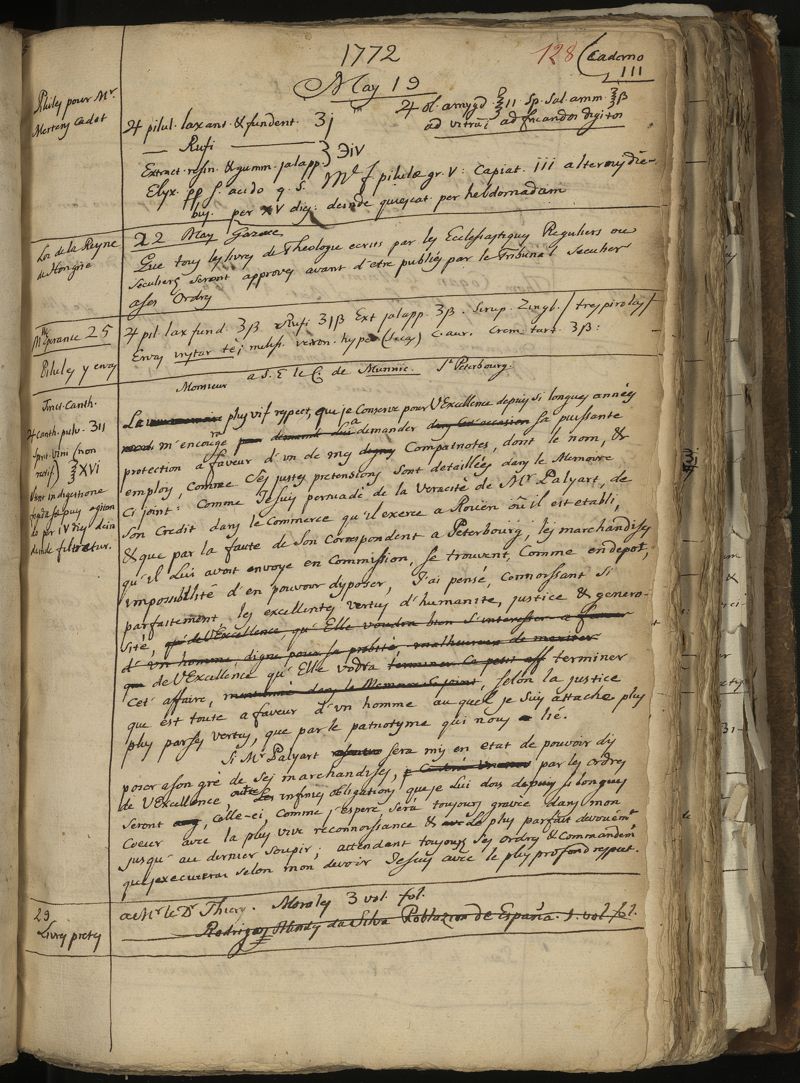 1772
128
Caderno
III
May 19
Pilules pour Mr.
Mertens Cadet
♃ pilul. laxant. & fundent. ʒj
— Rufi —
Extract. resin. & gumm. jalapp. } ℈iv
Elyx. pp s. acido q. s. M. f. pilulæ gr. V: Capiat. iii alternis die-
bus. per XV dies: deinde quiescat per hebdomadam
♃ ol. amygd. ʒII Sp. Sal. amm. ʒβ
ad fricandos digitos
Loi de la Reyne
de Hongrie
22 May Gazete
Que tous les livres de Theologie ecrits par les Ecclesiastiques Reguliers ou
Seculiers seront approuves avant d'etre publies par le Tribunal Seculier
a ses Ordres
25
Pilules y envoy
♃ pil. lax fund. ʒβ Rufi ʒjβ Ext jalapp. ʒβ. Sirup. Zingb.
Crem tart. ʒβ:
a S. E. le C. de Munnic. St Peterbourg.
Monsieur
Tinct. Canth.
♃ canth. pulv. ʒII
Spirit. vini (non
rectif.) ℥XVi
deinde filtretur.
plus vif respect, que je Conserve pour V Excellence depuis si longues années
m'encourage demander sa puissante
protection a faveur d'un de mes Compatriotes, dont le nom, &
employ, Comme Ses justes pretensions Sont detaillées dans le Memoire
Ci joint: Comme Je suis persuadé de la Veracité de Mr. Palyart, de
Son Credit dans le Commerce qu'il exerce a Rouen où il est etabli,
& que par la faute de Son Correspondent a Peterbourg, les marchandises
qu'il Lui avoit envoye en Commission, se trouvent, Comme en depot,
impossibilité d'en pouvoir dyposer, J'ai pensé, connoissant si
parfaitement, les excellentes vertus d'humanite, justice & genero-
sité, qu'de V Excellence, qu'Elle voudra bien s'interesser a faveur
d'un homme, digne pour sa probité, malheureux de meriter
de V Excellence qu'Elle vodra terminer Ce petit aff terminer
Cet' affaire, mentionné dans le Memoire Ci joint, selon la justice
que est toute a faveur d'un homme au quel je suis attache plus
plus par ses vertus, que par le patriotyme qui nous lié.
Si Mr. Palyart sera mis en etat de pouvoir dis
poser a son gré de Ses marchandises, par les ordres
de V Excellence outre Les infinies obligations que je Lui dois depuis si longues
seront, Celle-ci, Comme j'espere Sera toujours gravée dans mon
Coeur avec la plus vive reconnoissance & le plus parfait devouemt
jusqu'au dernier soupir; attendant toujours Ses ordres & Commandemts
que j'executerai selon mon devoir Je suis avec le plus profond respect.
29
Livres pretes
a Mr. le Dr. Thiery. Morales 3 vol. fol.
Rodrigues Mendes da Silva Poblacion de España. 1. vol fol.